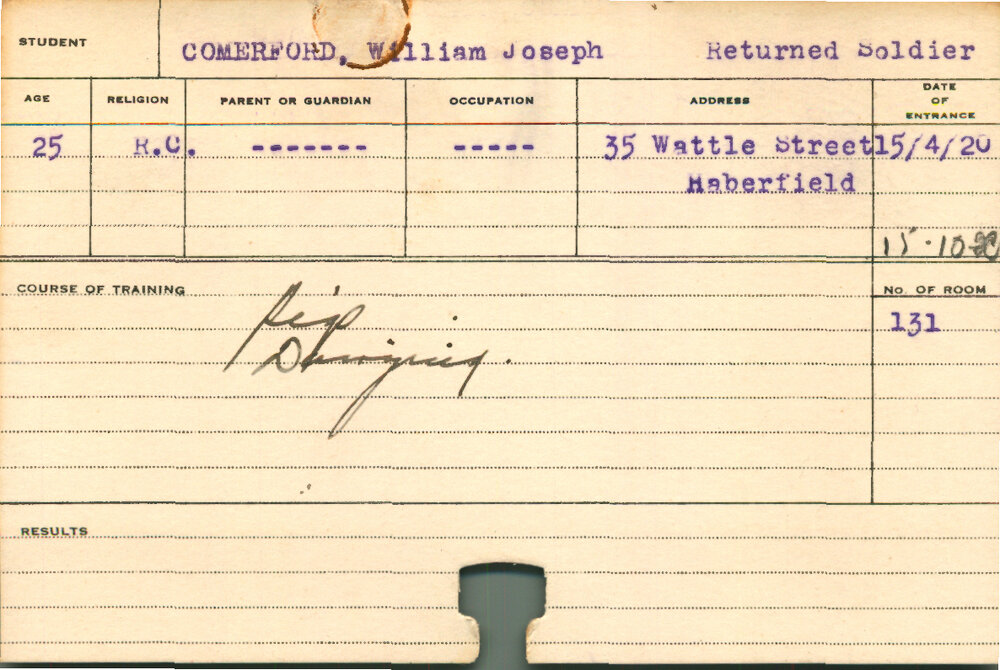 STUDENT COMERFORD, William Joseph Returned Soldier
AGE RELIGION PARENT OR GUARDIAN OCCUPATION ADDRESS DATE OF ENTRANCE
25 R.C. ------- ----- 35 Wattle Street 15/4/20
Haberfield
15.10
COURSE OF TRAINING No. OF ROOM
131
Designing.
RESULTS